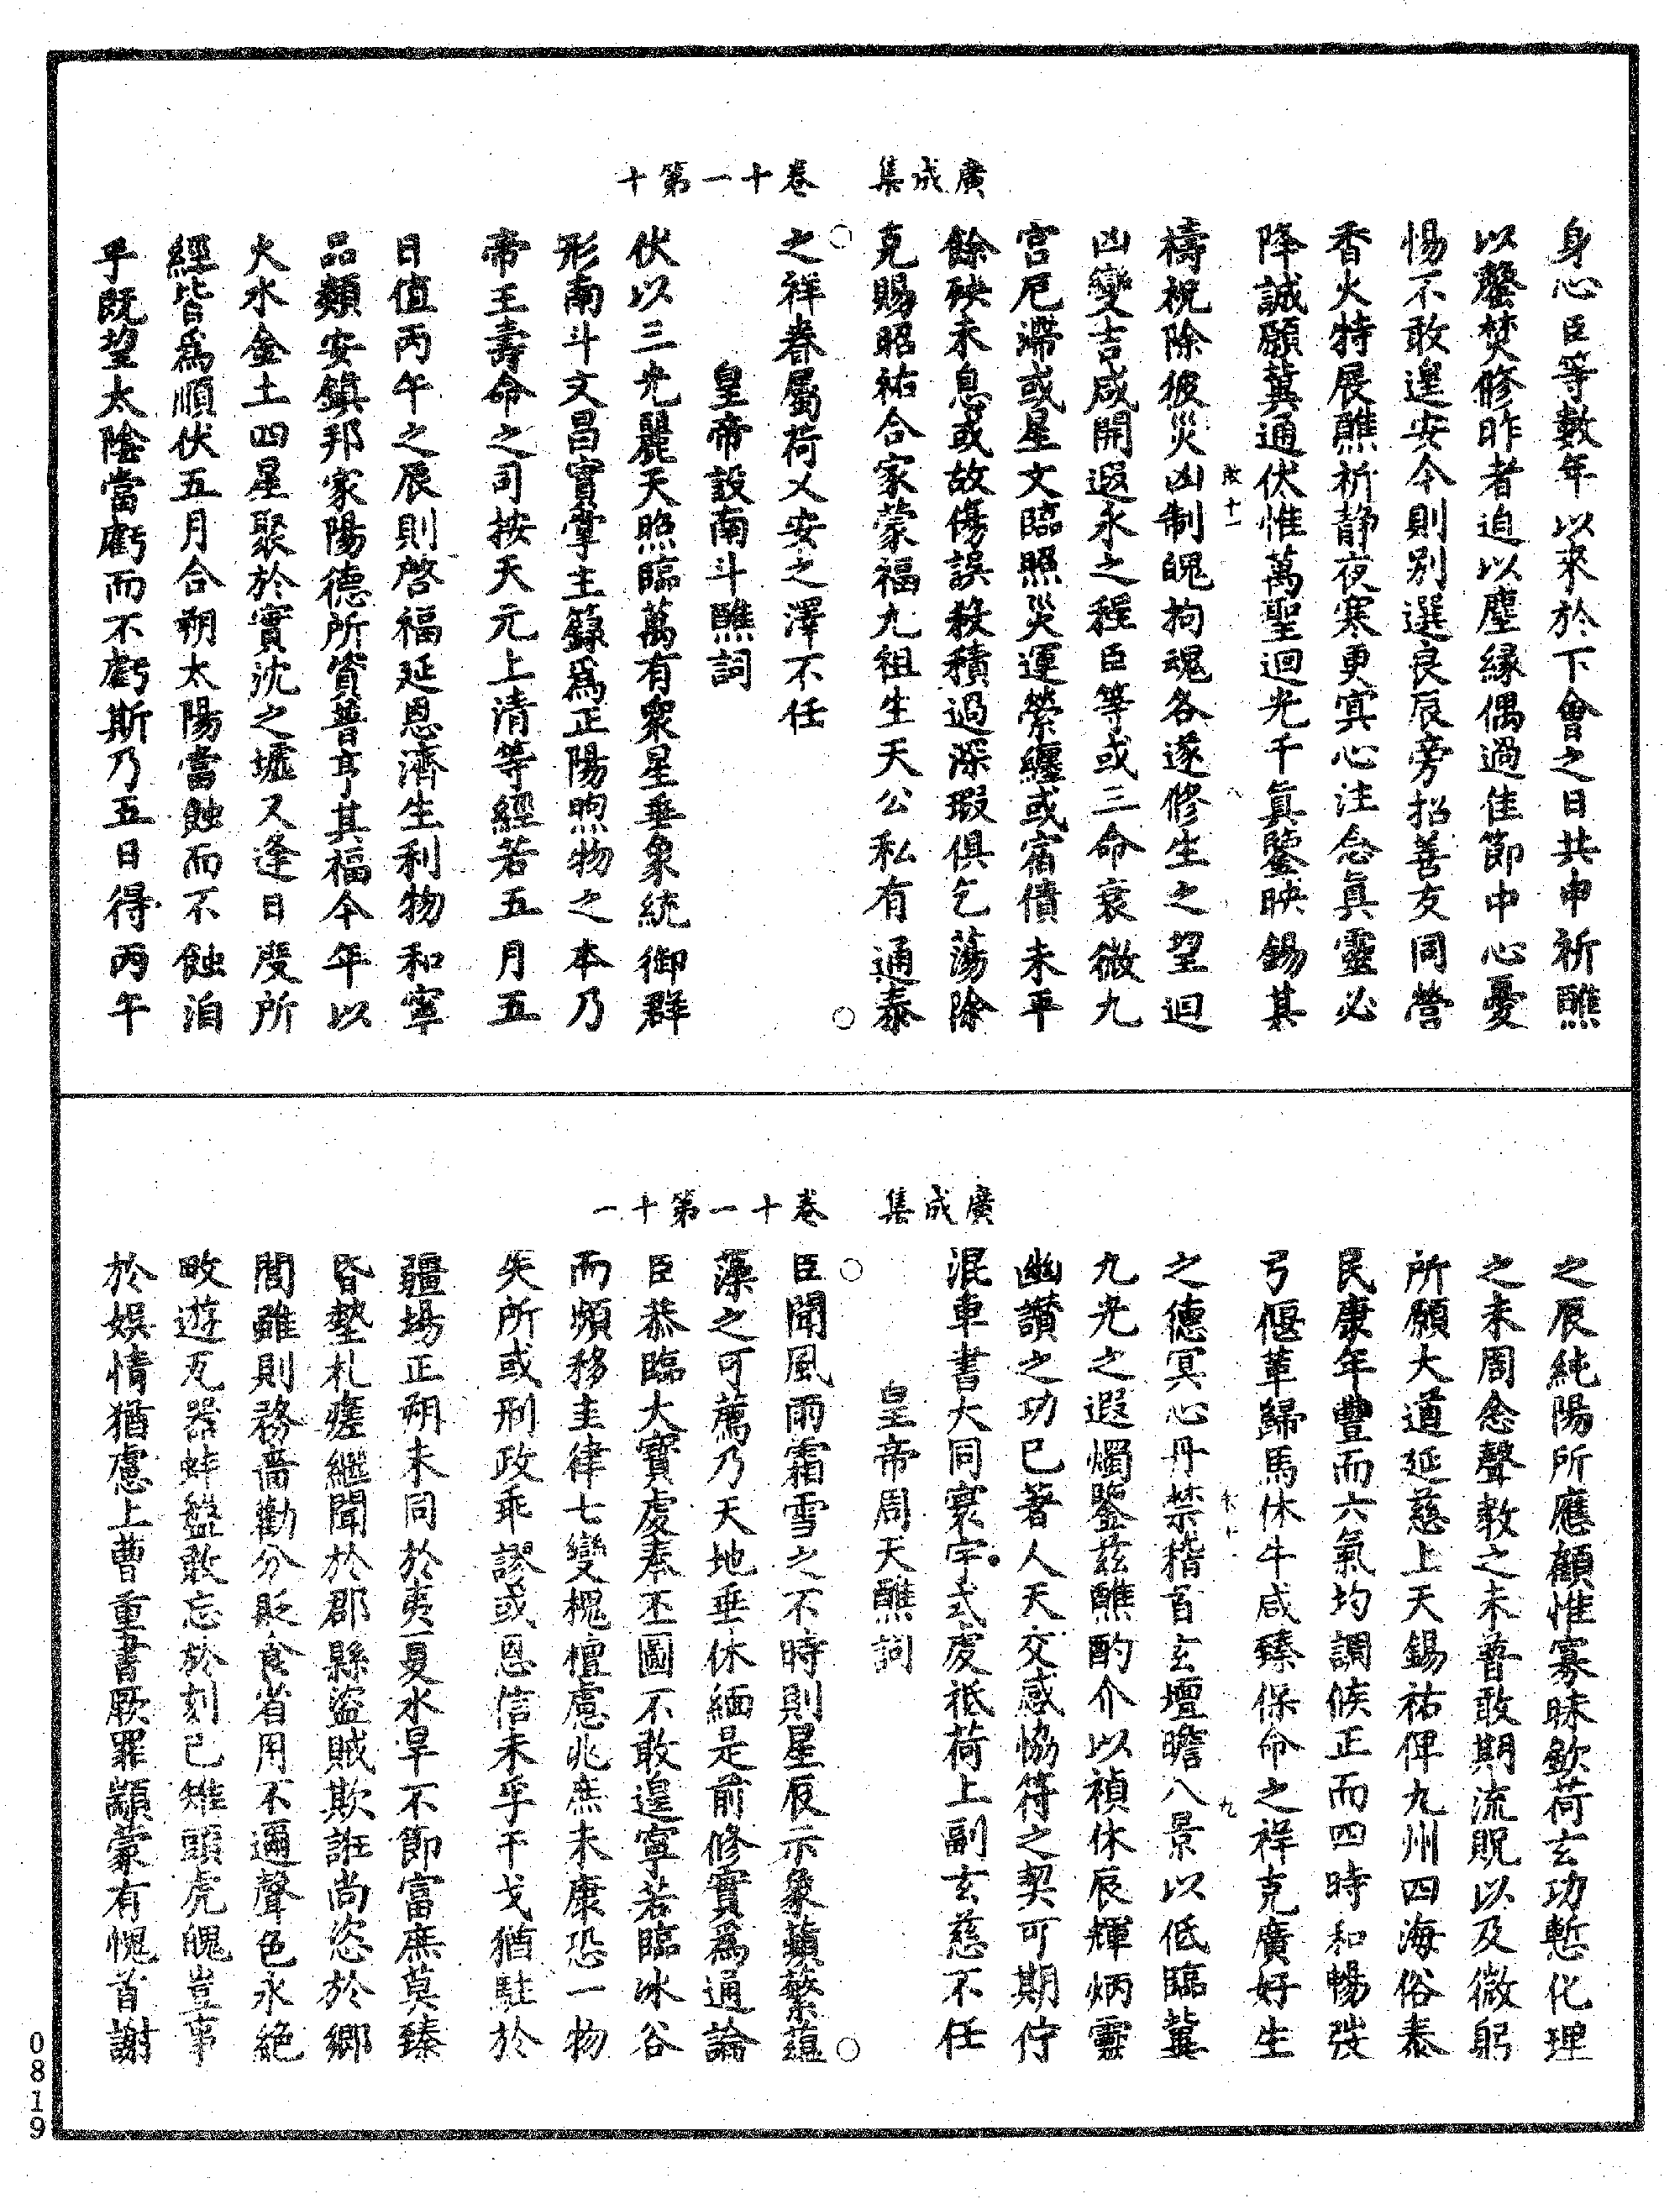 廣成集　卷十一第十
身心臣等數年以來於下會之日共申祈醮
以罄焚修昨者迫以塵緣偶過佳節中心憂
惕不敢遑安今則別選良辰旁招善友同營
香火特展醮祈靜夜寒更冥心注念眞靈必
降誠願冀通伏惟萬聖迴光千眞鑒映錫其
禱祝除彼災凶制魄拘魂各遂修生之望迴
凶變吉咸開遐永之程臣等或三命衰微九
宮厄滯或星文臨照災運縈纏或宿債未平
餘殃未息或故傷誤殺積過深瑕俱乞蕩除
克賜昭祐合家蒙福九祖生天公私有通泰
之祥眷屬荷乂安之澤不任
皇帝設南斗醮詞
伏以三光麗天照臨萬有衆星垂象統御群
形南斗文昌實掌主籙爲正陽煦物之本乃
帝王壽命之司按天元上清等經若五月五
日值丙午之辰則啓福延恩濟生利物和寧
品類安鎮邦家陽德所資普亨其福今年以
火水金土四星聚於實沈之墟又逢日殷所
經皆爲順伏五月合朔太陽當蝕而不蝕洎
乎既望太陰當虧而不虧斯乃五日得丙午
廣成集　卷十一第十一
之辰純陽所應顧惟寡昧欽荷玄功慙化理
之未周念聲教之未普敢期流貺以及微躬
所願大道延慈上天錫祐俾九州四海俗泰
民康年豐而六氣均調候正而四時和暢弢
弓偃革歸馬休牛咸臻保命之祥克廣好生
之德冥心丹禁稽首玄壇瞻八景以低臨冀
九光之遐燭鑒茲醮酌介以禎休辰輝炳靈
幽讚之功已著人天交感恊符之契可期佇
混車書大同寰宇式虔祗荷上副玄慈不任
皇帝周天醮詞
臣聞風雨霜雪之不時則星辰示象蘋蘩薀
藻之可薦乃天地垂休緬是前修實爲通論
臣恭臨大寶虔奉丕圖不敢遑寧若臨冰谷
而頻移圭律七變槐檀慮兆庶未康恐一物
失所或刑政乖謬或恩信未孚干戈猶駐於
疆場正朔未同於夷夏水旱不節富庶莫臻
昏墊札瘥繼聞於郡縣盜賊欺誑尚恣於鄉
閭雖則務嗇勸分貶食省用不邇聲色永絕
畋遊瓦器蚌盤敢忘於刻己雉頭虎魄豈事
於娛情猶慮上曹重書厥罪顓蒙有愧首謝
0819